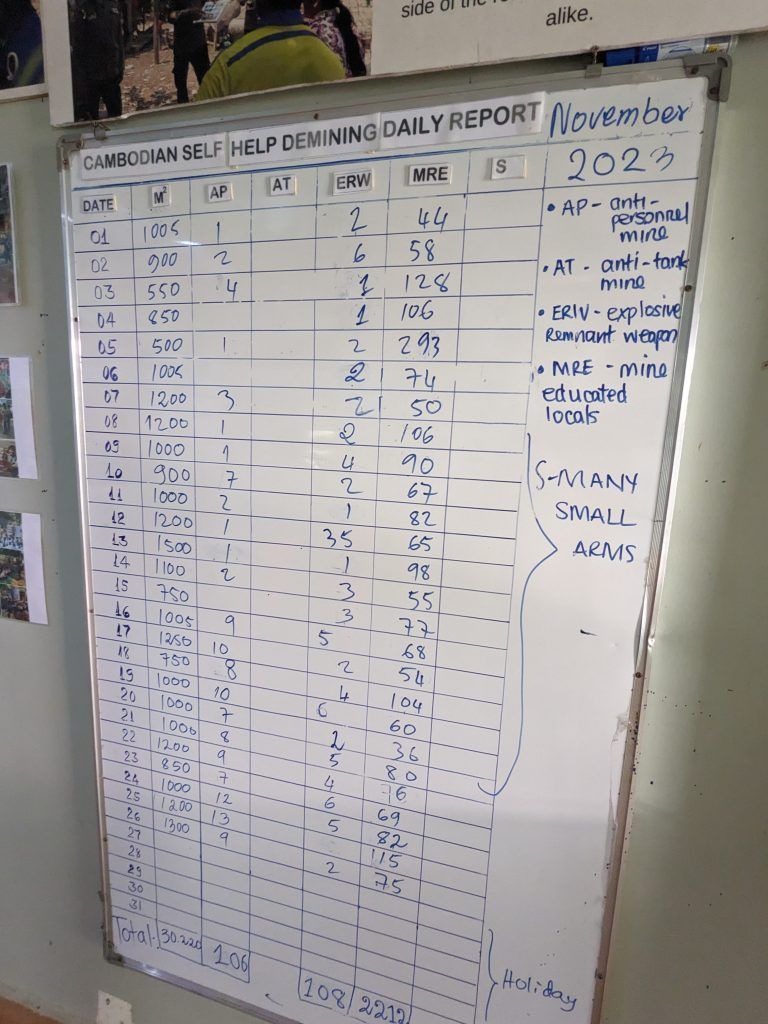 side of the
alike.
CAMBODIAN SELF HELP DEMINING DAILY REPORT November
2023
DATE M² AP AT ERW MRE S
01 1005 1 2 44
02 900 2 6 58
03 550 4 1 128
04 850 1 106
05 500 1 2 293
06 1005 2 74
07 1200 3 2 50
08 1200 1 2 106
09 1000 1 4 90
10 900 7 2 67
11 1000 2 1 82
12 1200 1 35 65
13 1500 1 1 98
14 1100 2 3 55
15 750 3 77
16 1005 9 5 68
17 1250 10 2 54
18 750 8 4 104
19 1000 10 6 60
20 1000 7 2 36
21 1000 8 5 80
22 1200 9 4 76
23 850 7 6 69
24 1000 12 5 82
25 1200 13 115
26 1300 9 2 75
27
28
29
30
31
Total. 30.220 106 108 2212
• AP - anti-
personnel
mine
• AT - anti-tank
mine
• ERIV - explosive
Remnant weapon
• MRE - mine
educated
locals
S-MANY
SMALL
ARMS
Holiday